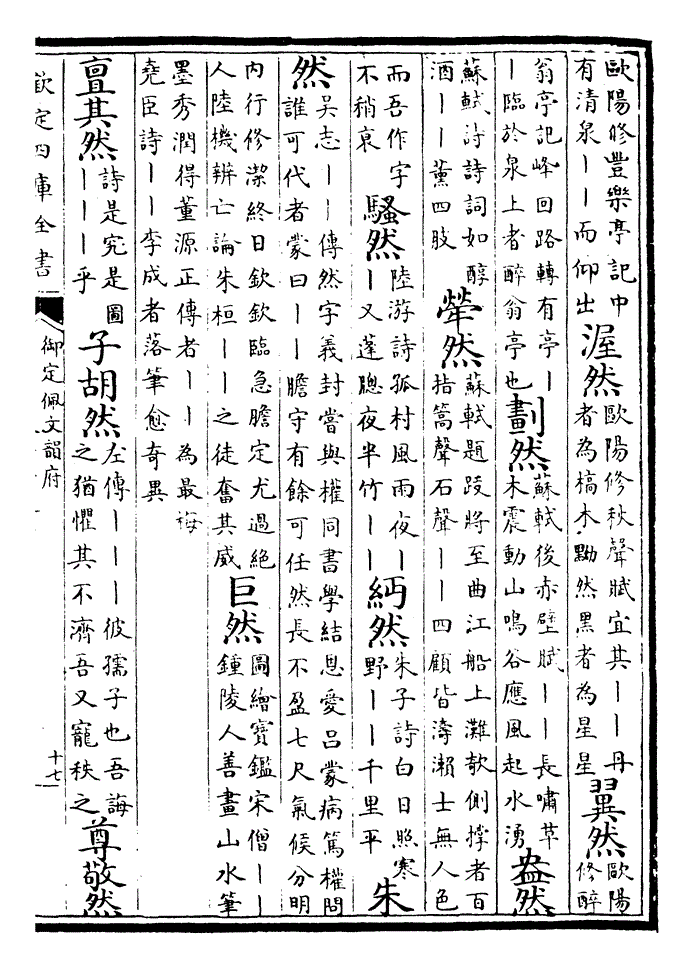 歐陽修豐樂亭記中
有清泉丨丨而仰出
渥然
歐陽修秋聲賦宜其丨丨丹
者為槁木黝然黑者為星星
翼然
歐陽
修醉
翁亭記峰回路轉有亭丨
丨臨於泉上者醉翁亭也
劃然
蘇軾後赤壁賦丨丨長嘯草
木震動山鳴谷應風起水湧
盎然
蘇軾詩詩詞如醇
酒丨丨薰四肢
犖然
蘇軾題跋將至曲江船上灘欹側撐者百
指篙聲石聲丨丨四顧皆濤瀨士無人色
而吾作字
不稍衰
騷然
陸游詩孤村風雨夜丨
丨又蓬聰夜半竹丨丨
緬然
朱子詩白日照寒
野丨丨千里平
朱
然
吳志丨丨傳然字義封嘗與權同書學結恩愛呂蒙病篤權問
誰可代者蒙曰丨丨膽守有餘可任然長不盈七尺氣候分明
內行修潔終日欽欽臨急膽定尤過絕
人陸機辨亡論朱桓丨丨之徒奮其威
巨然
圖繪寶鑑宋僧丨丨
鍾陵人善畫山水筆
墨秀潤得董源正傳者丨丨為最梅
堯臣詩丨丨李成者落筆愈奇異
亶其然
詩是究是圖
丨丨丨乎
子胡然
左傳丨丨丨彼孺子也吾誨
之猶懼其不濟吾又寵秩之
尊敬然
欽定四庫全書
御定佩文韻府
十七